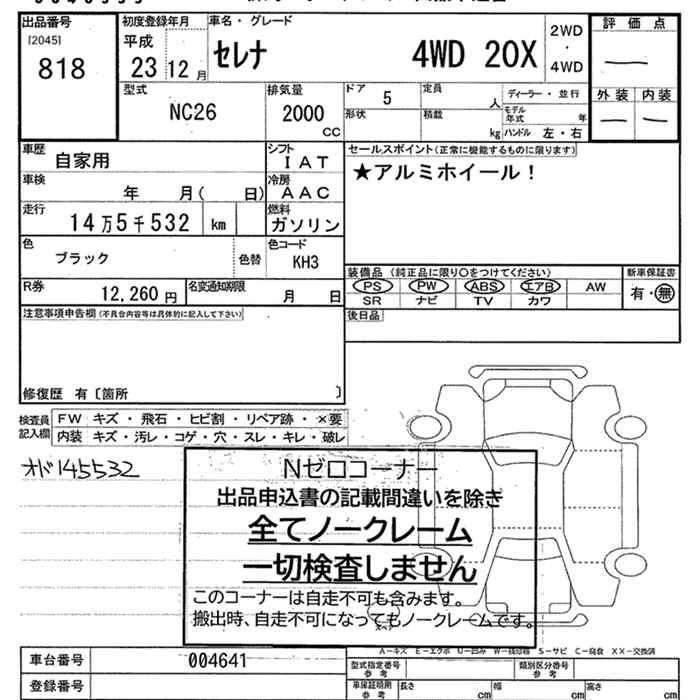 出品番号
[2045]
818
初度登録年月
平成
23 12 月
車名・グレード
セレナ 4WD 20X
2WD
・
4WD
評価点
—
外装 内装
— —
型式
NC26
排気量
2000
CC
ドア 5
定員 人
ディーラー・並行
形状
積載 kg
モデル年式 年
ハンドル 左・右
車歴
自家用
シフト
IAT
セールスポイント(正常に機能するものに限ります)
★アルミホイール!
車検
年 月( 日)
冷房
AAC
走行
14万5千532 km
燃料
ガソリン
色
ブラック
色替
色コード
KH3
装備品(純正品に限り○をつけてください)
新車保証書
PS PW ABS エアB AW
有・無
SR ナビ TV カワ
R券
12,260 円
名変通知期限
月 日
後日品
注意事項申告欄(不具合内容等は具体的に記入して下さい)
修復歴 有〔箇所 〕
検査員
記入欄
FW キズ・飛石・ヒビ割・リペア跡・×要
内装 キズ・汚レ・コゲ・穴・スレ・キレ・破レ
オド145532
Nゼロコーナー
出品申込書の記載間違いを除き
全てノークレーム
一切検査しません
このコーナーは自走不可も含みます。
搬出時、自走不可になってもノークレームです。
A-キズ E-エクボ U-凹み W-補修跡 S-サビ C-腐食 XX-交換済
車台番号 004641
登録番号
型式指定番号
参考
類別区分番号
参考
車庫証明用
参考
長さ cm
幅 cm
高さ cm